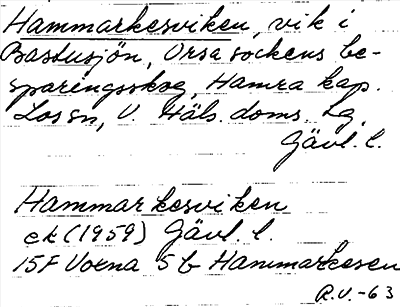 Hammarkesviken, vik i
Bastusjön, Orsa sockens be-
sparingsskog, Hamra kap.
Los sn, V. Häls. doms. lg,
Gävl. l.
Hammarkesviken
ek (1959) Gävl. l.
15F Voxna 5b Hammarkesen
R.V.-63